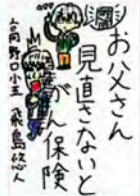 お父さん
見直さないと
がん保険
高野口小五 飛島悠人